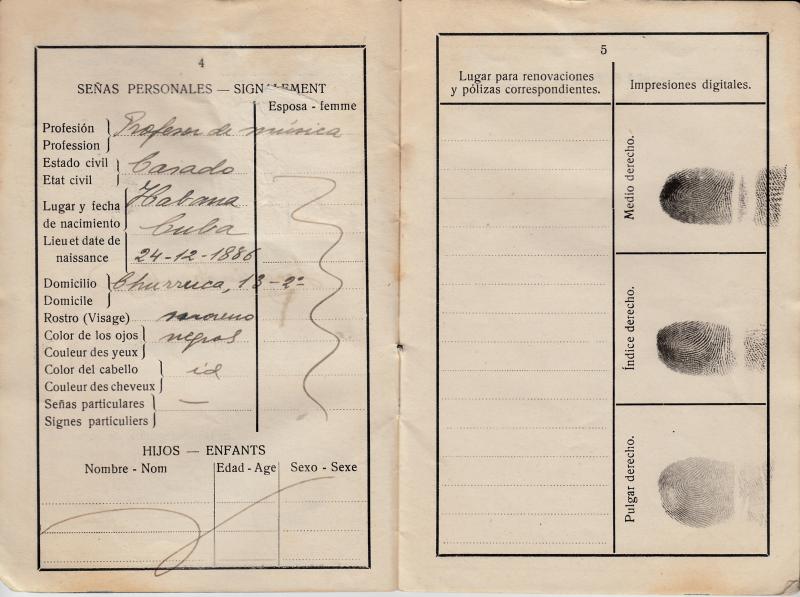 4
SEÑAS PERSONALES — SIGNALEMENT
Esposa - femme
Profesión
Profession
Profesor de música
Estado civil
Etat civil
Casado
Lugar y fecha
de nacimiento
Lieu et date de
naissance
Habana
Cuba
24-12-1886
Domicilio
Domicile
Churruca, 13 - 2º
Rostro (Visage) moreno
Color de los ojos
Couleur des yeux
negros
Color del cabello
Couleur des cheveux
id
Señas particulares
Signes particuliers
—
HIJOS — ENFANTS
Nombre - Nom Edad - Age Sexo - Sexe
5
Lugar para renovaciones
y pólizas correspondientes.
Impresiones digitales.
Medio derecho.
Índice derecho.
Pulgar derecho.